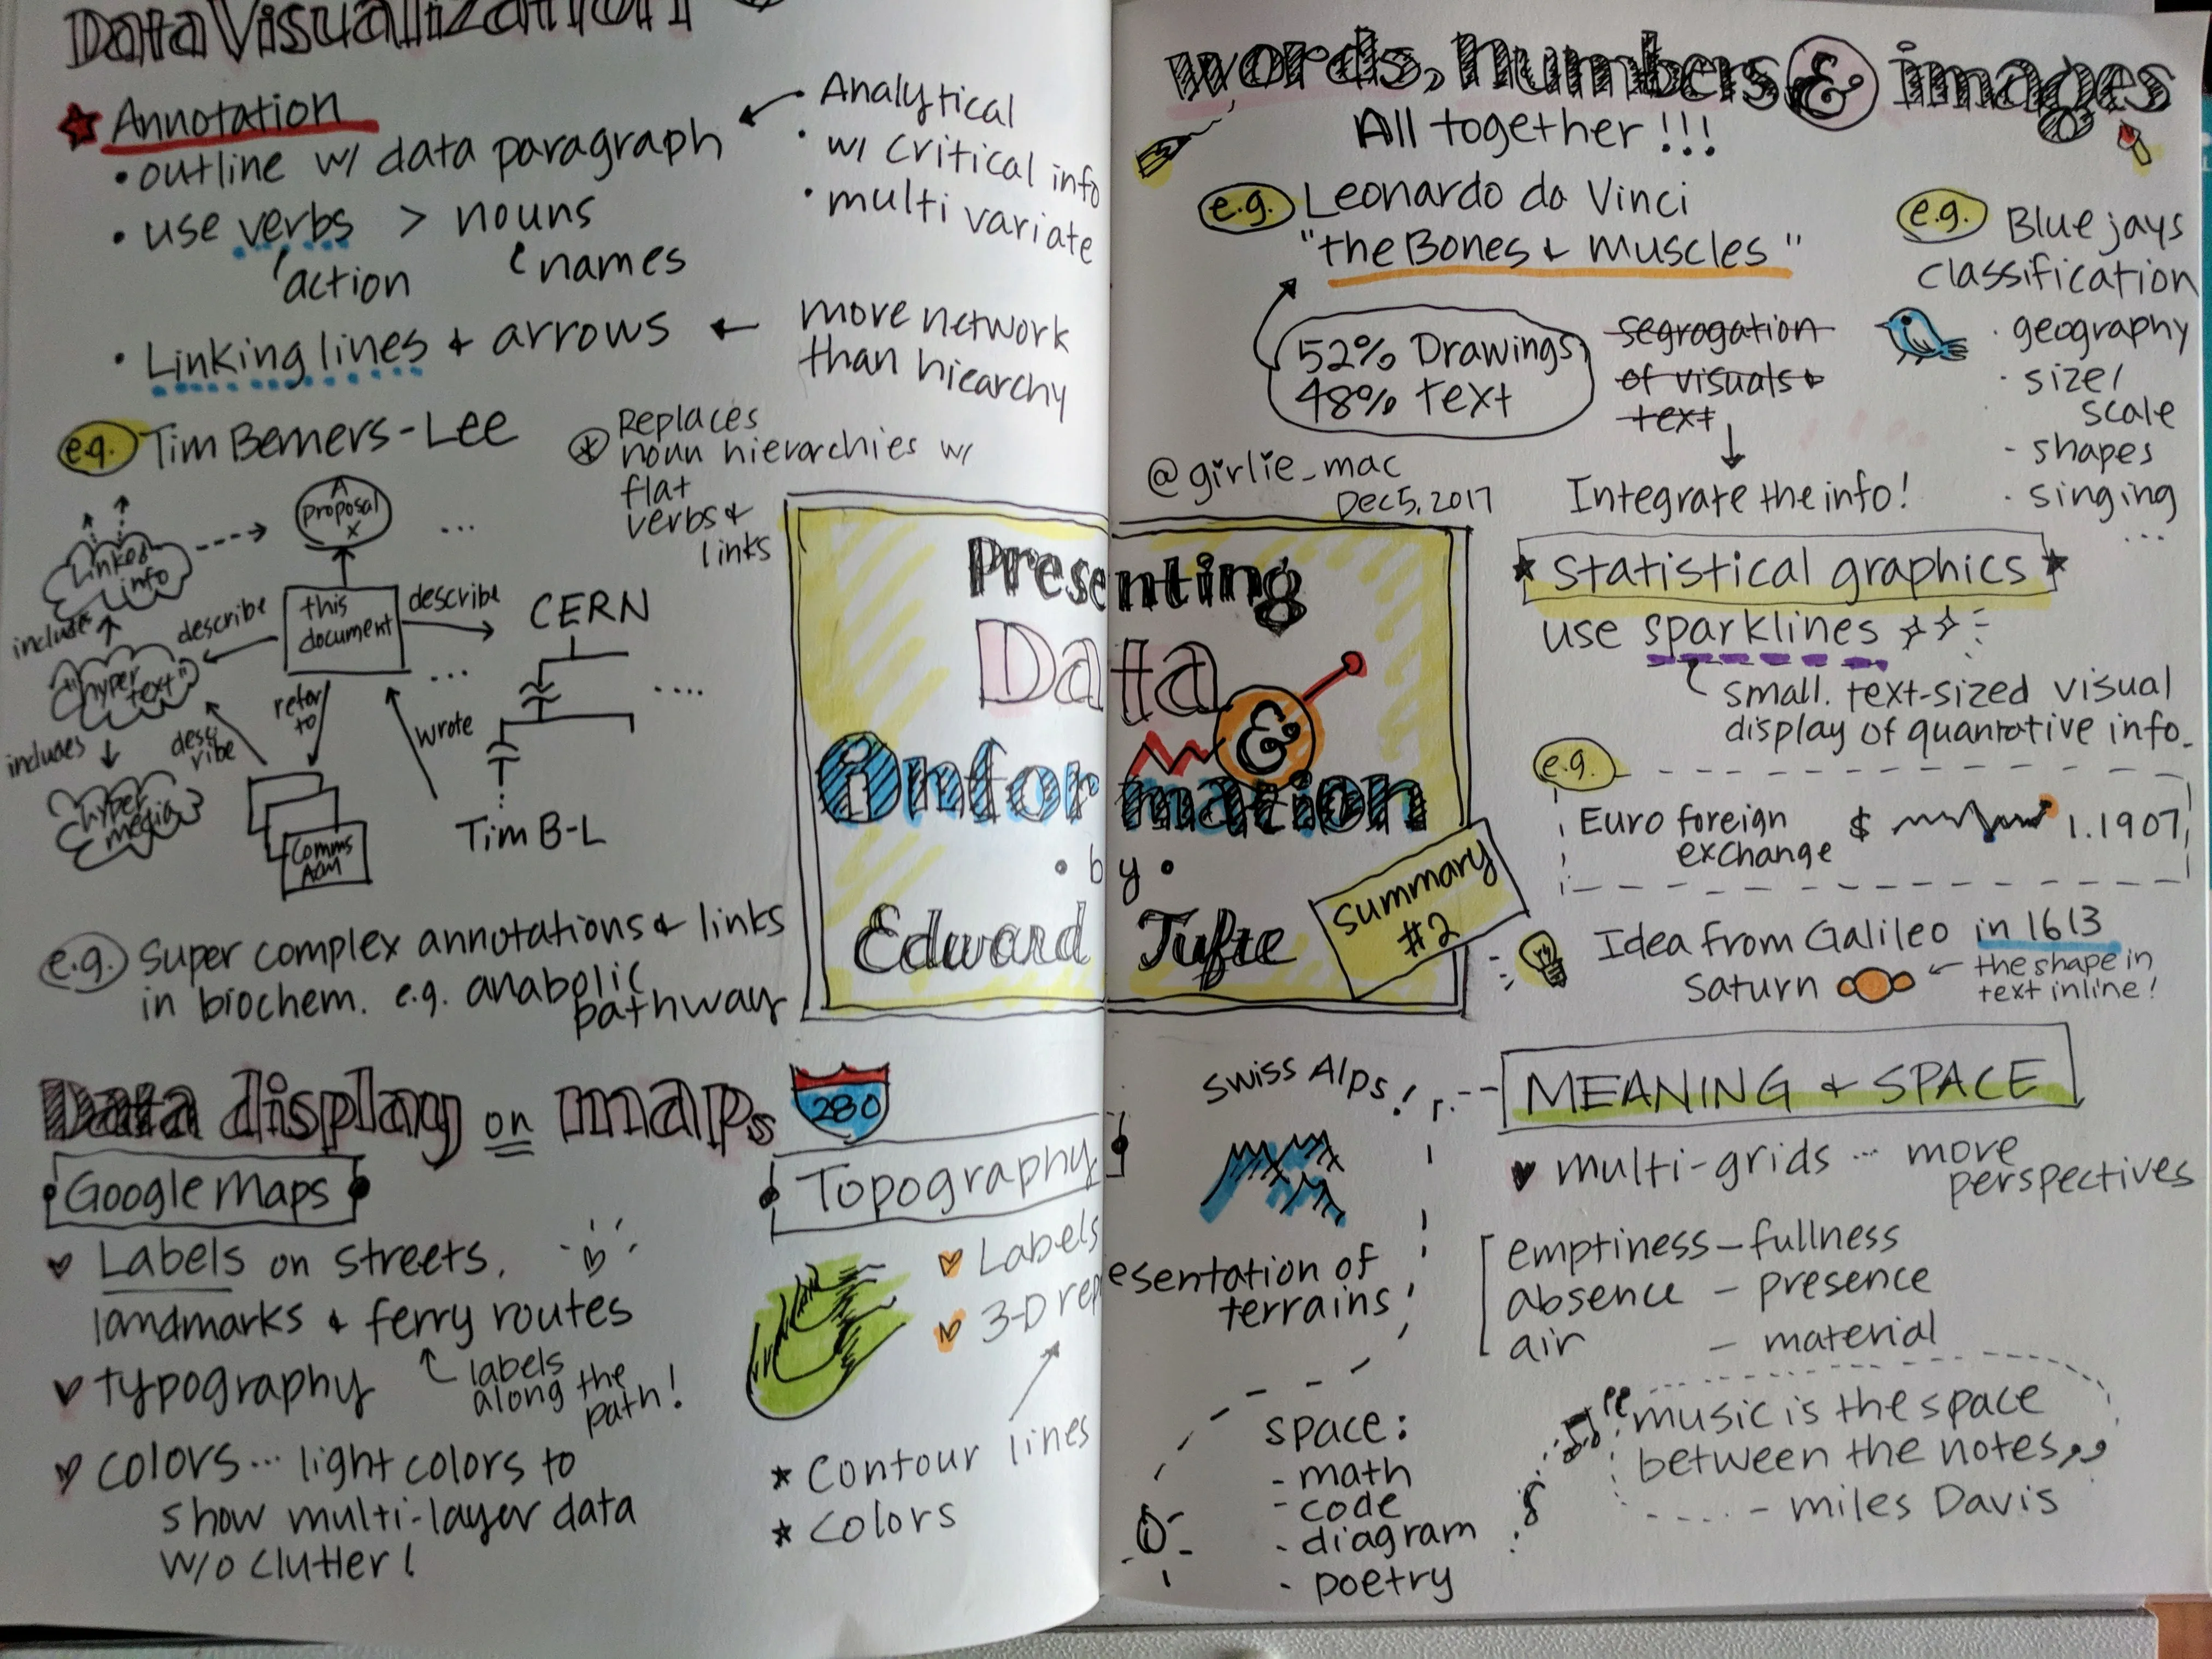 Data Visualization
Annotation
• outline w/ data paragraph
• use verbs > nouns
action names
• Linking lines & arrows
• Analytical
• w/ critical info
• multi variate
more network
than hiearchy
e.g. Tim Berners-Lee
Replaces
noun hierarchies w/
flat
verbs &
links
A
proposal
X
...
Linked
info
includes
describe
this
document
describe
CERN
...
....
"hyper
text"
refer
to
wrote
includes
desc
ribe
hyper
media
Comms
ACM
Tim B-L
e.g. Super complex annotations & links
in biochem. e.g. anabolic
pathway
Data display on maps
280
Google Maps
Labels on streets,
landmarks & ferry routes
labels
along the
path!
typography
colors... light colors to
show multi-layer data
w/o clutter!
Topography
Labels
3-D representation of
terrains
★ Contour lines
★ colors
Presenting
Data
&
Information
• by •
Edward Tufte
Summary
#2
words, numbers & images
All together!!!
e.g. Leonardo da Vinci
"the Bones & Muscles"
52% Drawings
48% text
segragation
of visuals &
text
Integrate the info!
@girlie_mac
Dec 5, 2017
e.g. Blue jays
classification
· geography
· size/
scale
- shapes
· singing
...
★ Statistical graphics ★
use sparklines
small. text-sized visual
display of quantative info.
e.g.
Euro foreign
exchange $ 1.1907
Idea from Galileo in 1613
Saturn ← the shape in
text inline!
Swiss Alps!
MEANING & SPACE
multi-grids ... more
perspectives
emptiness – fullness
absence – presence
air – material
space:
- math
- code
- diagram
- poetry
"music is the space
between the notes"
- miles Davis